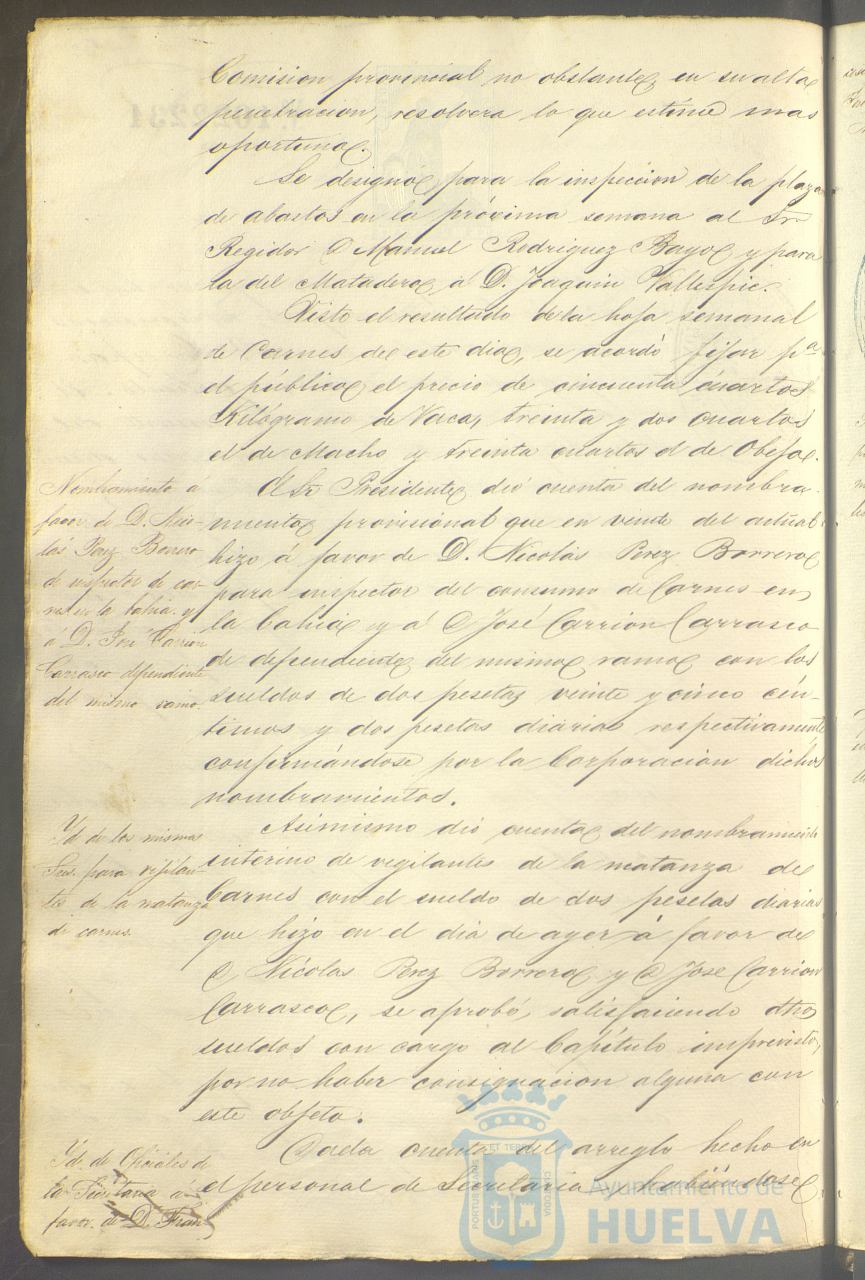 Comision provincial no obstante, en su alta
penetracion, resolvera lo que estime mas
oportuno.
Se designó para la inspeccion de la plaza
de abastos en la próxima semana al Sr.
Regidor D Manuel Rodriguez Bayo y para
la del Matadero, á D. Joaquin Vallespic.
Visto el resultado de la hoja semanal
de Carnes de este dia, se acordó fijar pa.
el público el precio de cincuenta cuartos
Kilógramo de Vaca, treinta y dos cuartos
el de Macho y treinta cuartos el de Obeja.
Nombramiento a
favor de D. Nico-
lás Perez Borrero
de inspector de car-
nes en la bahia y
á D. José Carrion
Carrasco dependiente
del mismo ramo.
El Sr Presidente dió cuenta del nombra-
miento provisional que en veinte del actual
hizo á favor de D. Nicolás Perez Borrero
para inspector del consumo de Carnes en
la bahia y á D José Carrion Carrasco
de dependiente del mismo ramo con los
sueldos de dos pesetas veinte y cinco cén-
timos y dos pesetas diarias respectivamente
confirmándose por la Corporacion dichos
nombramientos.
Yd de los mismos
Sres. para vigilan-
tes de la matanza
de carnes.
Asimismo dió cuenta del nombramiento
interino de vegilantes de la matanza de
Carnes con el sueldo de dos pesetas diarias
que hizo en el dia de ayer á favor de
D. Nicolas Perez Borrero y D José Carrion
Carrasco, se aprobó, satisfaciendo dhos
sueldos con cargo al Capítulo imprevisto,
por no haber consignacion alguna con
este objeto.
Yd. de Oficiales de
la Secretaria á
favor de D. Fran
Dada cuenta del arreglo hecho en
el personal de Secretaria, habiéndose
PORTUS MARIS ET TERRE CUSTODIA
Ayuntamiento de
HUELVA